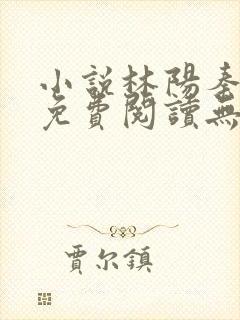 小說林陽秦
免費閱讀無
賈尔鎮